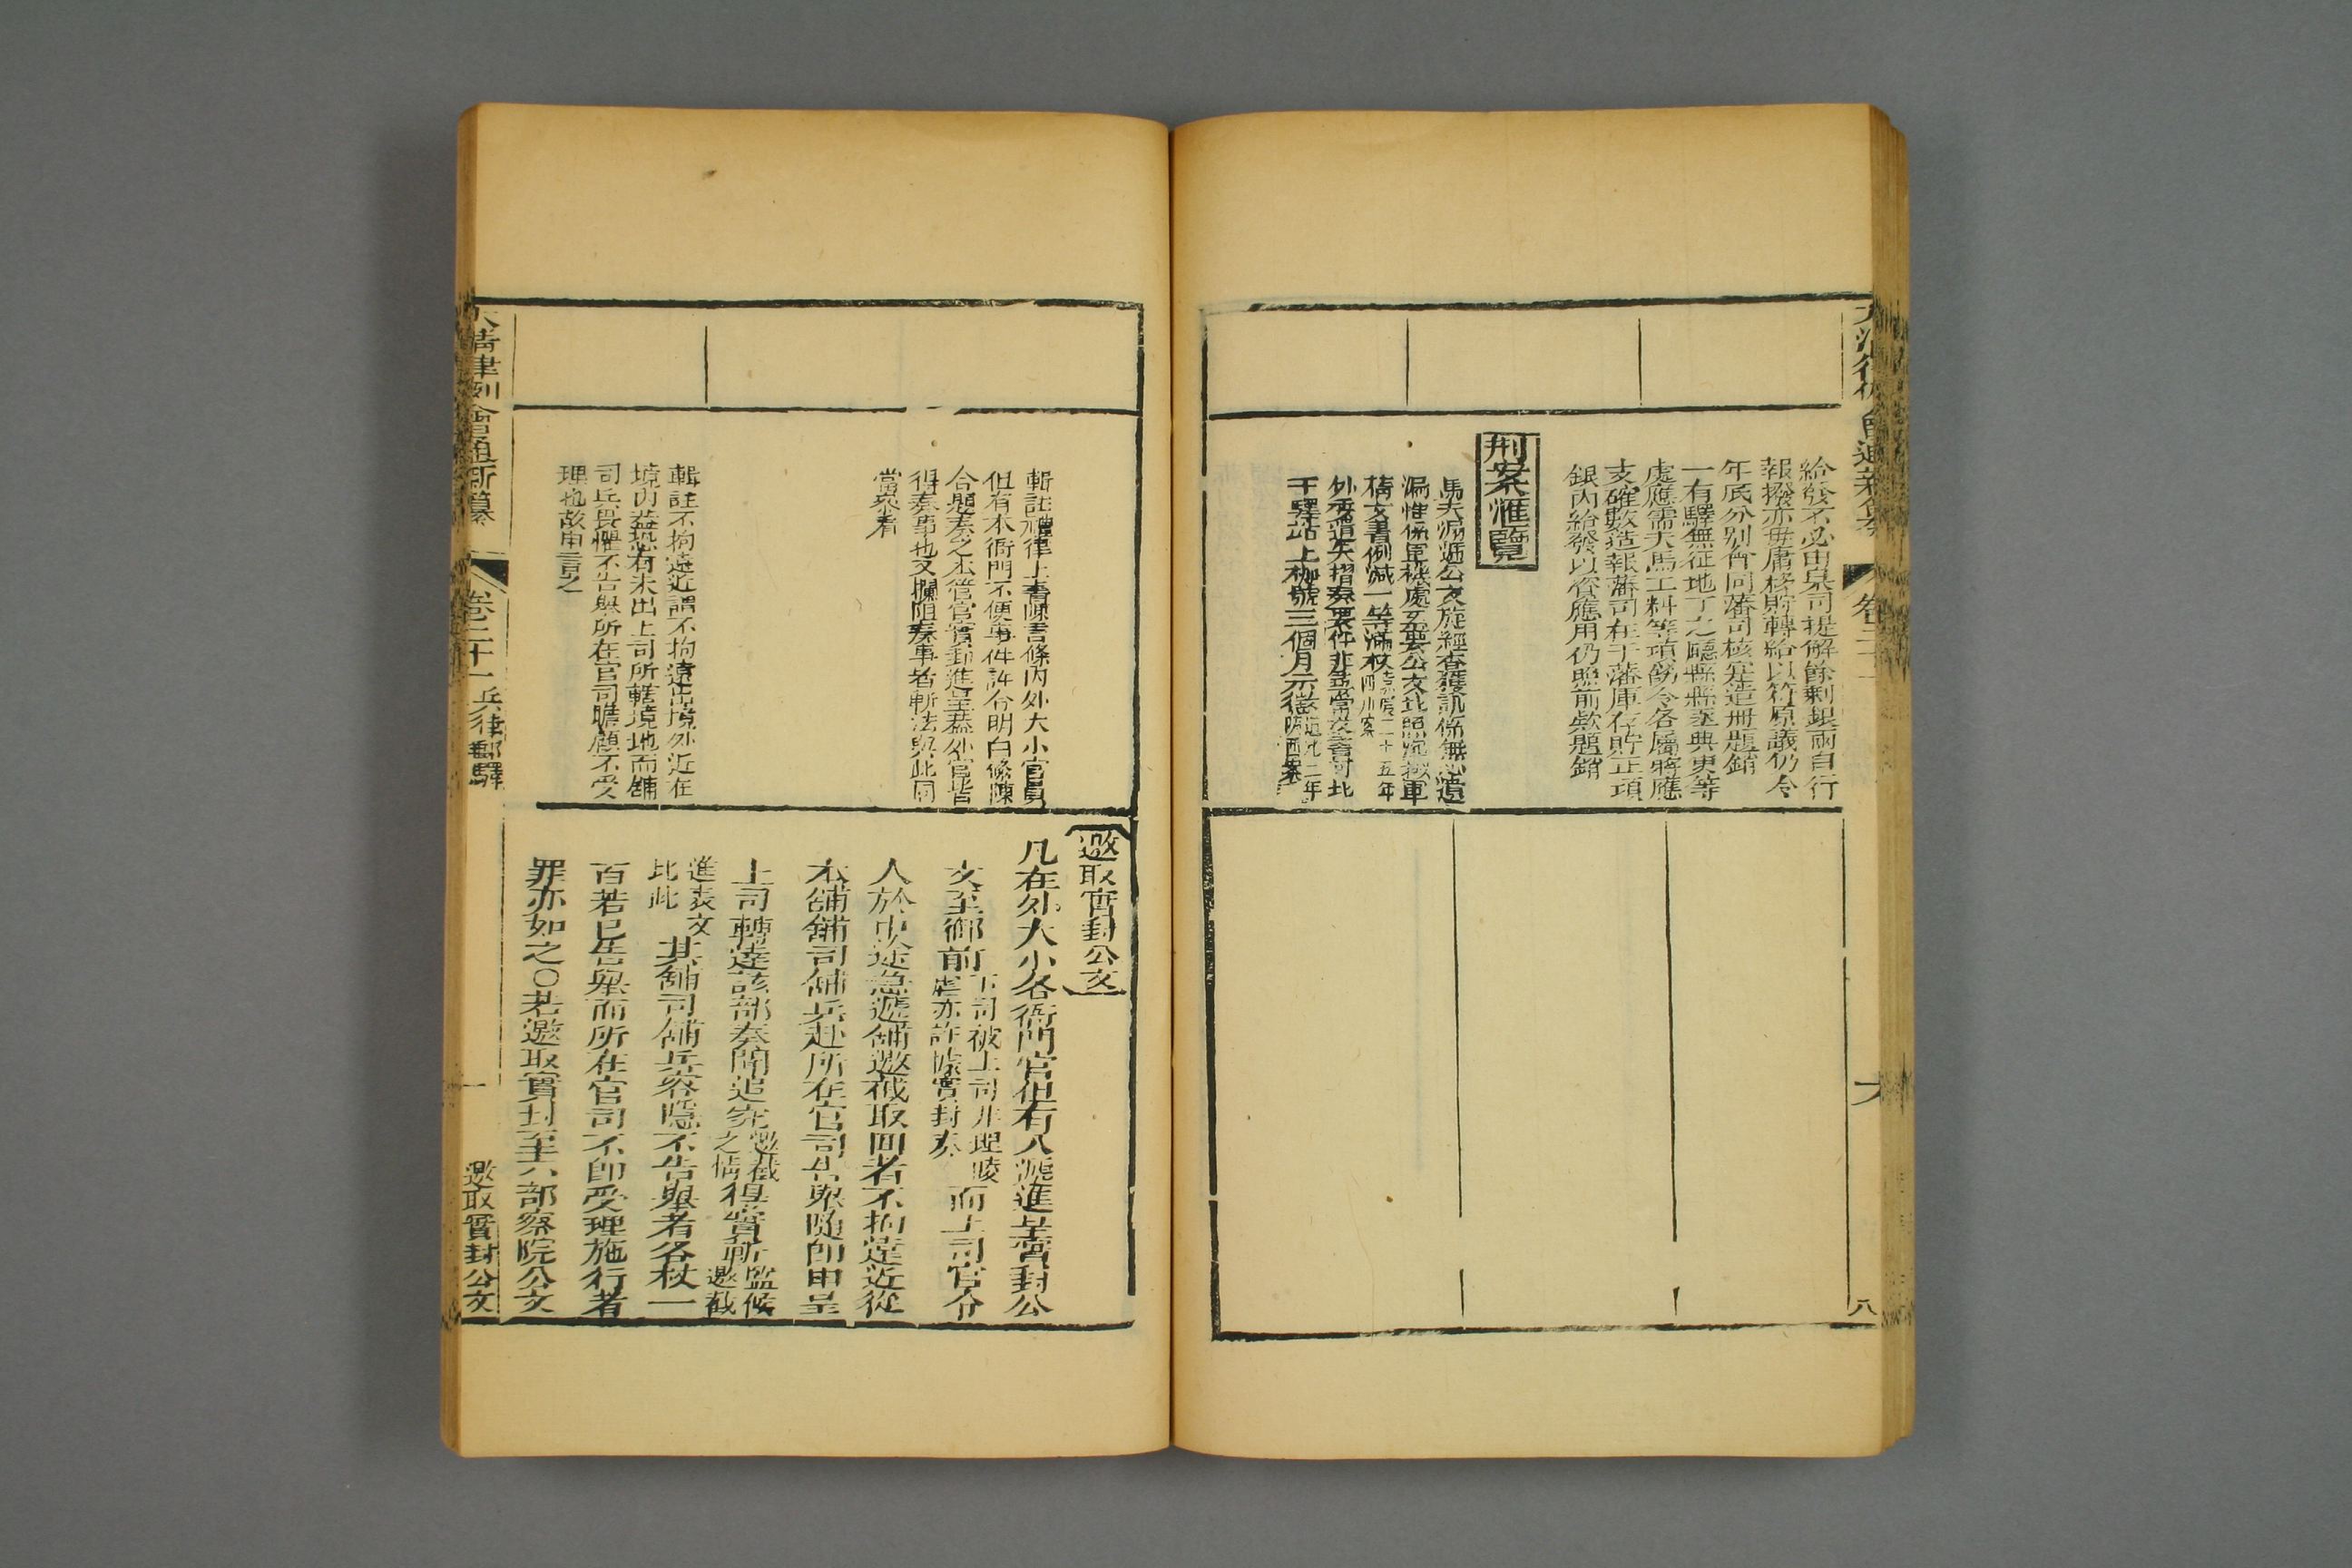 給發不必由臬司提解餘剩銀兩自行
報撥亦毋庸移貯轉給以符原議仍令
年底分別會同藩司核定造冊題銷
一有驛無征地丁之廳縣縣丞典吏等
處應需夫馬工料等項飭令各屬將應
支確數造報藩司在于藩庫存貯正項
銀內給發以資應用仍照前欵題銷
刑案滙覽
馬夫漏遞公文旋經查獲訊係無心遺
漏惟係軍機處交要公文比照沉擱軍
情文書例減一等滿杖嘉慶二十五年四川案
外委遺失摺奏要件非尋常文書可比
于驛站上枷號三個月示懲道光二年陝西案
八
邀取實封公文
輯註禮律上書陳言條內外大小官員
但有本衙門不便事件許令明白條陳
合題奏之本管官實封進呈蓋外官皆
得奏事也又攔阻奏事者斬法與此同
當叅看
輯註不拘遠近謂不拘遠出境外近在
境內蓋恐有未出上司所轄境地而舖
司兵畏懼不告舉所在官司瞻顧不受
理也故申言之
凡在外大小各衙門官但有入遞進呈實封公
文至御前下司被上司非理陵虐亦許據實封奏而上司官令
人於中途急遞舖邀截取回者不拘遠近從
本舖舖司舖兵赴所在官司告舉隨即申呈
上司轉達該部奏聞追究邀截之情得實斬監候邀截
進表文比此其舖司舖兵容隱不告舉者各杖一
百若已告舉而所在官司不即受理施行者
罪亦如之〇若邀取實封至六部察院公文
大清律例會通新纂
卷二十一
兵律郵驛
一
邀取實封公文